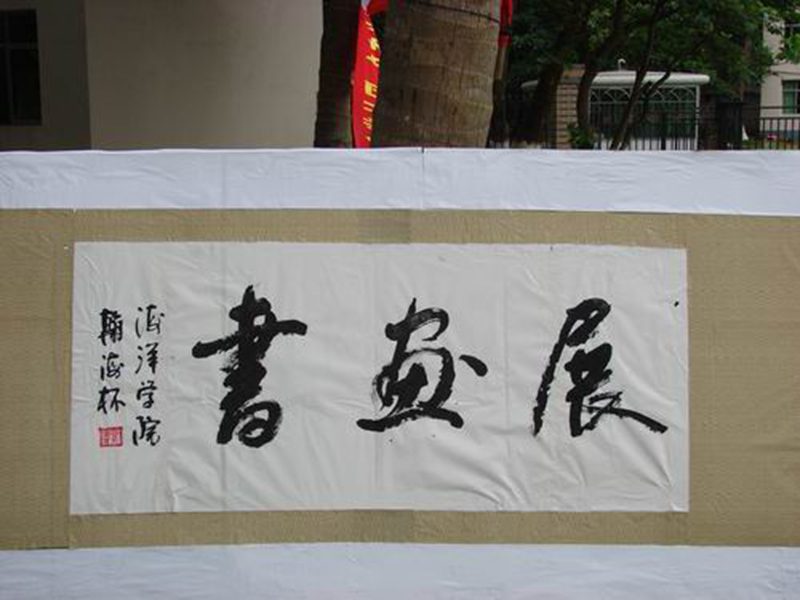 書畫展
海洋学院
翰海杯